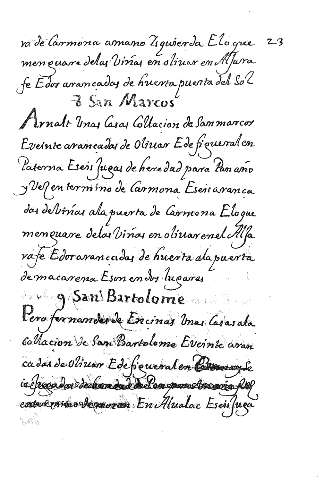 ra de Carmona amano Izquierda Eloque 23
menguare delas Viñas en olivar en Alfara
fe Edos arancadas de huerta puerta del Sol
8 San Marcos
Arnalt Unas Casas Collacion de San marcos
Eveinte arancadas de Olivar Ede figueral en
Paterna Eseis Jugas de heredad para Pan año
y Vez en termino de Carmona Eseis aranca
das de Viñas ala puerta de Carmona Eloque
menguare delas Viñas en olivar en el Alfa
rafe Edos arancadas de huerta ala puerta
de macarena Eson en dos lugares
9 San Bartolome
Pero fernandes de Encinas Unas Casas ala
Collacion de San Bartolome Eveinte aran
cadas de Olivar Ede figueral en
En Alualac Eseis Juga